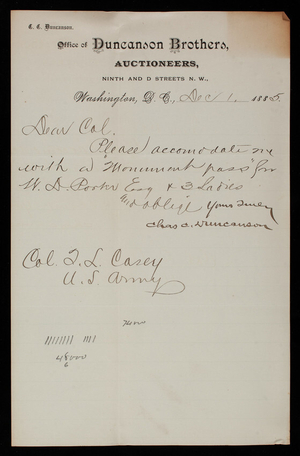 C. C. Duncanson.
Office of Duncanson Brothers,
AUCTIONEERS,
NINTH AND D STREETS N. W.,
Washington, D. C., Dec 1 1885
Dear Col.
Please accomodate me
with a "Monument pass" for
W. D. Porter Esq & 3 Ladies
& oblige Yours Truly
Chas C. Duncanson
Col. T. L. Casey
U. S. Army